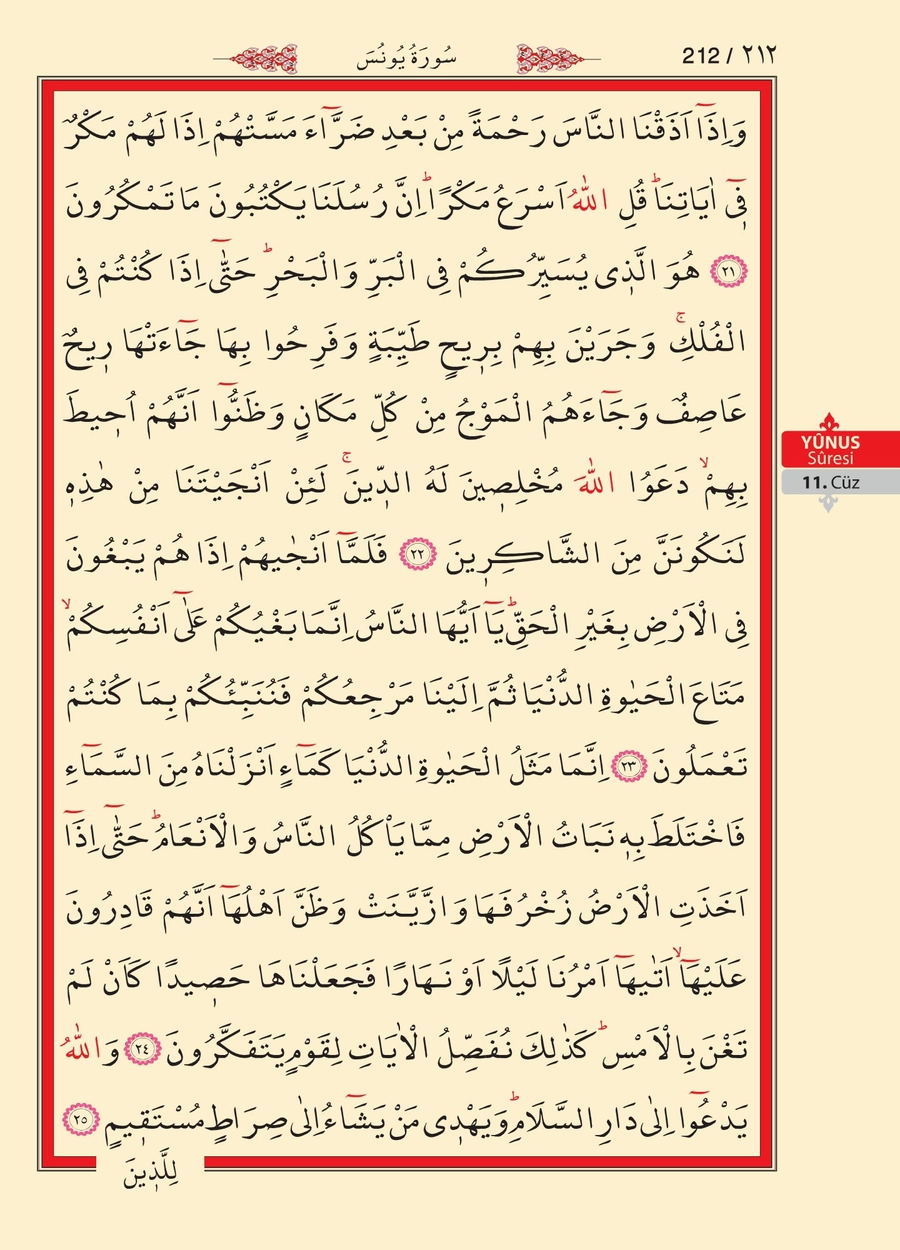 212 / ٢١٢
سُورَةُ يُونُسَ
وَاِذَٓا اَذَقْنَا النَّاسَ رَحْمَةً مِنْ بَعْدِ ضَرَّٓاءَ مَسَّتْهُمْ اِذَا لَهُمْ مَكْرٌ
فٖٓى اٰيَاتِنَاؕ قُلِ اللّٰهُ اَسْرَعُ مَكْرًاؕ اِنَّ رُسُلَنَا يَكْتُبُونَ مَا تَمْكُرُونَ
﴿٢١﴾ هُوَ الَّذٖى يُسَيِّرُكُمْ فِى الْبَرِّ وَالْبَحْرِؕ حَتّٰٓى اِذَا كُنْتُمْ فِى
الْفُلْكِۚ وَجَرَيْنَ بِهِمْ بِرٖيحٍ طَيِّبَةٍ وَفَرِحُوا بِهَا جَٓاءَتْهَا رٖيحٌ
عَاصِفٌ وَجَٓاءَهُمُ الْمَوْجُ مِنْ كُلِّ مَكَانٍ وَظَنُّٓوا اَنَّهُمْ اُحٖيطَ
بِهِمْۙ دَعَوُا اللّٰهَ مُخْلِصٖينَ لَهُ الدّٖينَۚ لَئِنْ اَنْجَيْتَنَا مِنْ هٰذِهٖ
لَنَكُونَنَّ مِنَ الشَّاكِرٖينَ ﴿٢٢﴾ فَلَمَّٓا اَنْجٰيهُمْ اِذَا هُمْ يَبْغُونَ
فِى الْاَرْضِ بِغَيْرِ الْحَقِّؕ يَٓا اَيُّهَا النَّاسُ اِنَّمَا بَغْيُكُمْ عَلٰٓى اَنْفُسِكُمْۙ
مَتَاعَ الْحَيٰوةِ الدُّنْيَا ثُمَّ اِلَيْنَا مَرْجِعُكُمْ فَنُنَبِّئُكُمْ بِمَا كُنْتُمْ
تَعْمَلُونَ ﴿٢٣﴾ اِنَّمَا مَثَلُ الْحَيٰوةِ الدُّنْيَا كَمَٓاءٍ اَنْزَلْنَاهُ مِنَ السَّمَٓاءِ
فَاخْتَلَطَ بِهٖ نَبَاتُ الْاَرْضِ مِمَّا يَاْكُلُ النَّاسُ وَالْاَنْعَامُؕ حَتّٰٓى اِذَٓا
اَخَذَتِ الْاَرْضُ زُخْرُفَهَا وَازَّيَّنَتْ وَظَنَّ اَهْلُهَٓا اَنَّهُمْ قَادِرُونَ
عَلَيْهَٓاۙ اَتٰيهَٓا اَمْرُنَا لَيْلًا اَوْ نَهَارًا فَجَعَلْنَاهَا حَصٖيدًا كَاَنْ لَمْ
تَغْنَ بِالْاَمْسِؕ كَذٰلِكَ نُفَصِّلُ الْاٰيَاتِ لِقَوْمٍ يَتَفَكَّرُونَ ﴿٢٤﴾ وَاللّٰهُ
يَدْعُٓوا اِلٰى دَارِ السَّلَامِؕ وَيَهْدٖى مَنْ يَشَٓاءُ اِلٰى صِرَاطٍ مُسْتَقٖيمٍ ﴿٢٥﴾
لِلَّذٖينَ
YÛNUS
Sûresi
11. Cüz